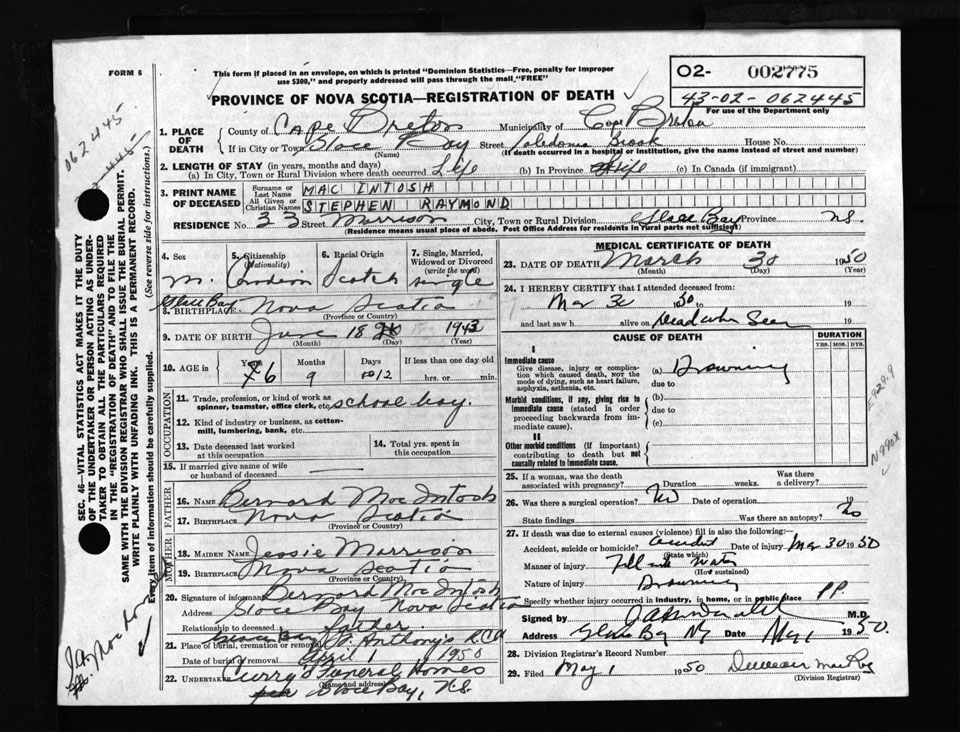 FORM 6
This form if placed in an envelope, on which is printed "Dominion Statistics—Free, penalty for improper
use $300," and properly addressed will pass through the mail "FREE"
PROVINCE OF NOVA SCOTIA—REGISTRATION OF DEATH
02- 002775
43-02-062445
For use of the Department only
062445
SEC. 46—VITAL STATISTICS ACT MAKES IT THE DUTY
OF THE UNDERTAKER OR PERSON ACTING AS UNDER-
TAKER TO OBTAIN ALL THE PARTICULARS REQUIRED
IN THE "REGISTRATION OF DEATH" AND TO FILE THE
SAME WITH THE DIVISION REGISTRAR WHO SHALL ISSUE THE BURIAL PERMIT.
WRITE PLAINLY WITH UNFADING INK. THIS IS A PERMANENT RECORD.
Every item of information should be carefully supplied. (See reverse side for instructions.)
1. PLACE OF DEATH County of Cape Breton Municipality of Cape Breton
If in City or Town Glace Bay Street Caledonia Brook House No.
(Name) (If death occurred in a hospital or institution, give the name instead of street and number)
2. LENGTH OF STAY (in years, months and days)
(a) In City, Town or Rural Division where death occurred Life (b) In Province Life (c) In Canada (if immigrant)
3. PRINT NAME OF DECEASED Surname or Last Name MAC INTOSH
All Given or Christian Names STEPHEN RAYMOND
RESIDENCE No. 33 Street Morrison City, Town or Rural Division Glace Bay Province N.S.
(Residence means usual place of abode. Post Office Address for residents in Rural parts not sufficient)
4. Sex 5. Citizenship (Nationality) 6. Racial Origin 7. Single, Married, Widowed or Divorced (write the word)
M. Canadian Scotch single
8. BIRTHPLACE Glace Bay Nova Scotia
(Province or Country)
9. DATE OF BIRTH June 18 1943
(Month) (Day) (Year)
10. AGE in Years Months Days If less than one day old
6 9 12 hrs. or min.
OCCUPATION
11. Trade, profession, or kind of work as spinner, teamster, office clerk, etc. school boy.
12. Kind of industry or business, as cotton-mill, lumbering, bank, etc.
13. Date deceased last worked at this occupation
14. Total yrs. spent in this occupation
15. If married give name of wife or husband of deceased
FATHER
16. NAME Bernard MacIntosh
17. BIRTHPLACE Nova Scotia
(Province or Country)
MOTHER
18. MAIDEN NAME Jessie Morrison
19. BIRTHPLACE Nova Scotia
(Province or Country)
20. Signature of informant Bernard MacIntosh
Address Glace Bay Nova Scotia
Relationship to deceased father
21. Place of burial, cremation or removal Glace Bay St. Anthony's R.C.
Date of burial or removal April 1 1950
22. UNDERTAKER Curry's Funeral Homes
(Name and address)
Glace Bay, N.S.
MEDICAL CERTIFICATE OF DEATH
23. DATE OF DEATH March 30 1950
(Month) (Day) (Year)
24. I HEREBY CERTIFY that I attended deceased from:
Mar 30 50 to 19
and last saw h alive on Dead when Seen 19
CAUSE OF DEATH DURATION
YRS. MOS. DYS.
I
Immediate cause
Give disease, injury or complication which caused death, NOT the mode of dying, such as heart failure, asphyxia, asthenia, etc.
(a) Drowning
due to
Morbid conditions, if any, giving rise to immediate cause (stated in order proceeding backwards from immediate cause).
(b)
due to
(c)
II
Other morbid conditions (if important) contributing to death but not causally related to immediate cause.
E929.9
N990X
25. If a woman, was the death associated with pregnancy? Duration weeks. Was there a delivery?
26. Was there a surgical operation? No Date of operation 19
State findings Was there an autopsy? No
27. If death was due to external causes (violence) fill in also the following:—
Accident, suicide or homicide? Accident Date of injury Mar 30 1950
(State which)
Manner of injury Fell into Water
(How sustained)
Nature of injury Drowning
Specify whether injury occurred in industry, in home, or in public place PP.
Signed by M.D.
Address Glace Bay NS Date May 1 1950.
28. Division Registrar's Record Number
29. Filed May 1 1950
(Division Registrar)